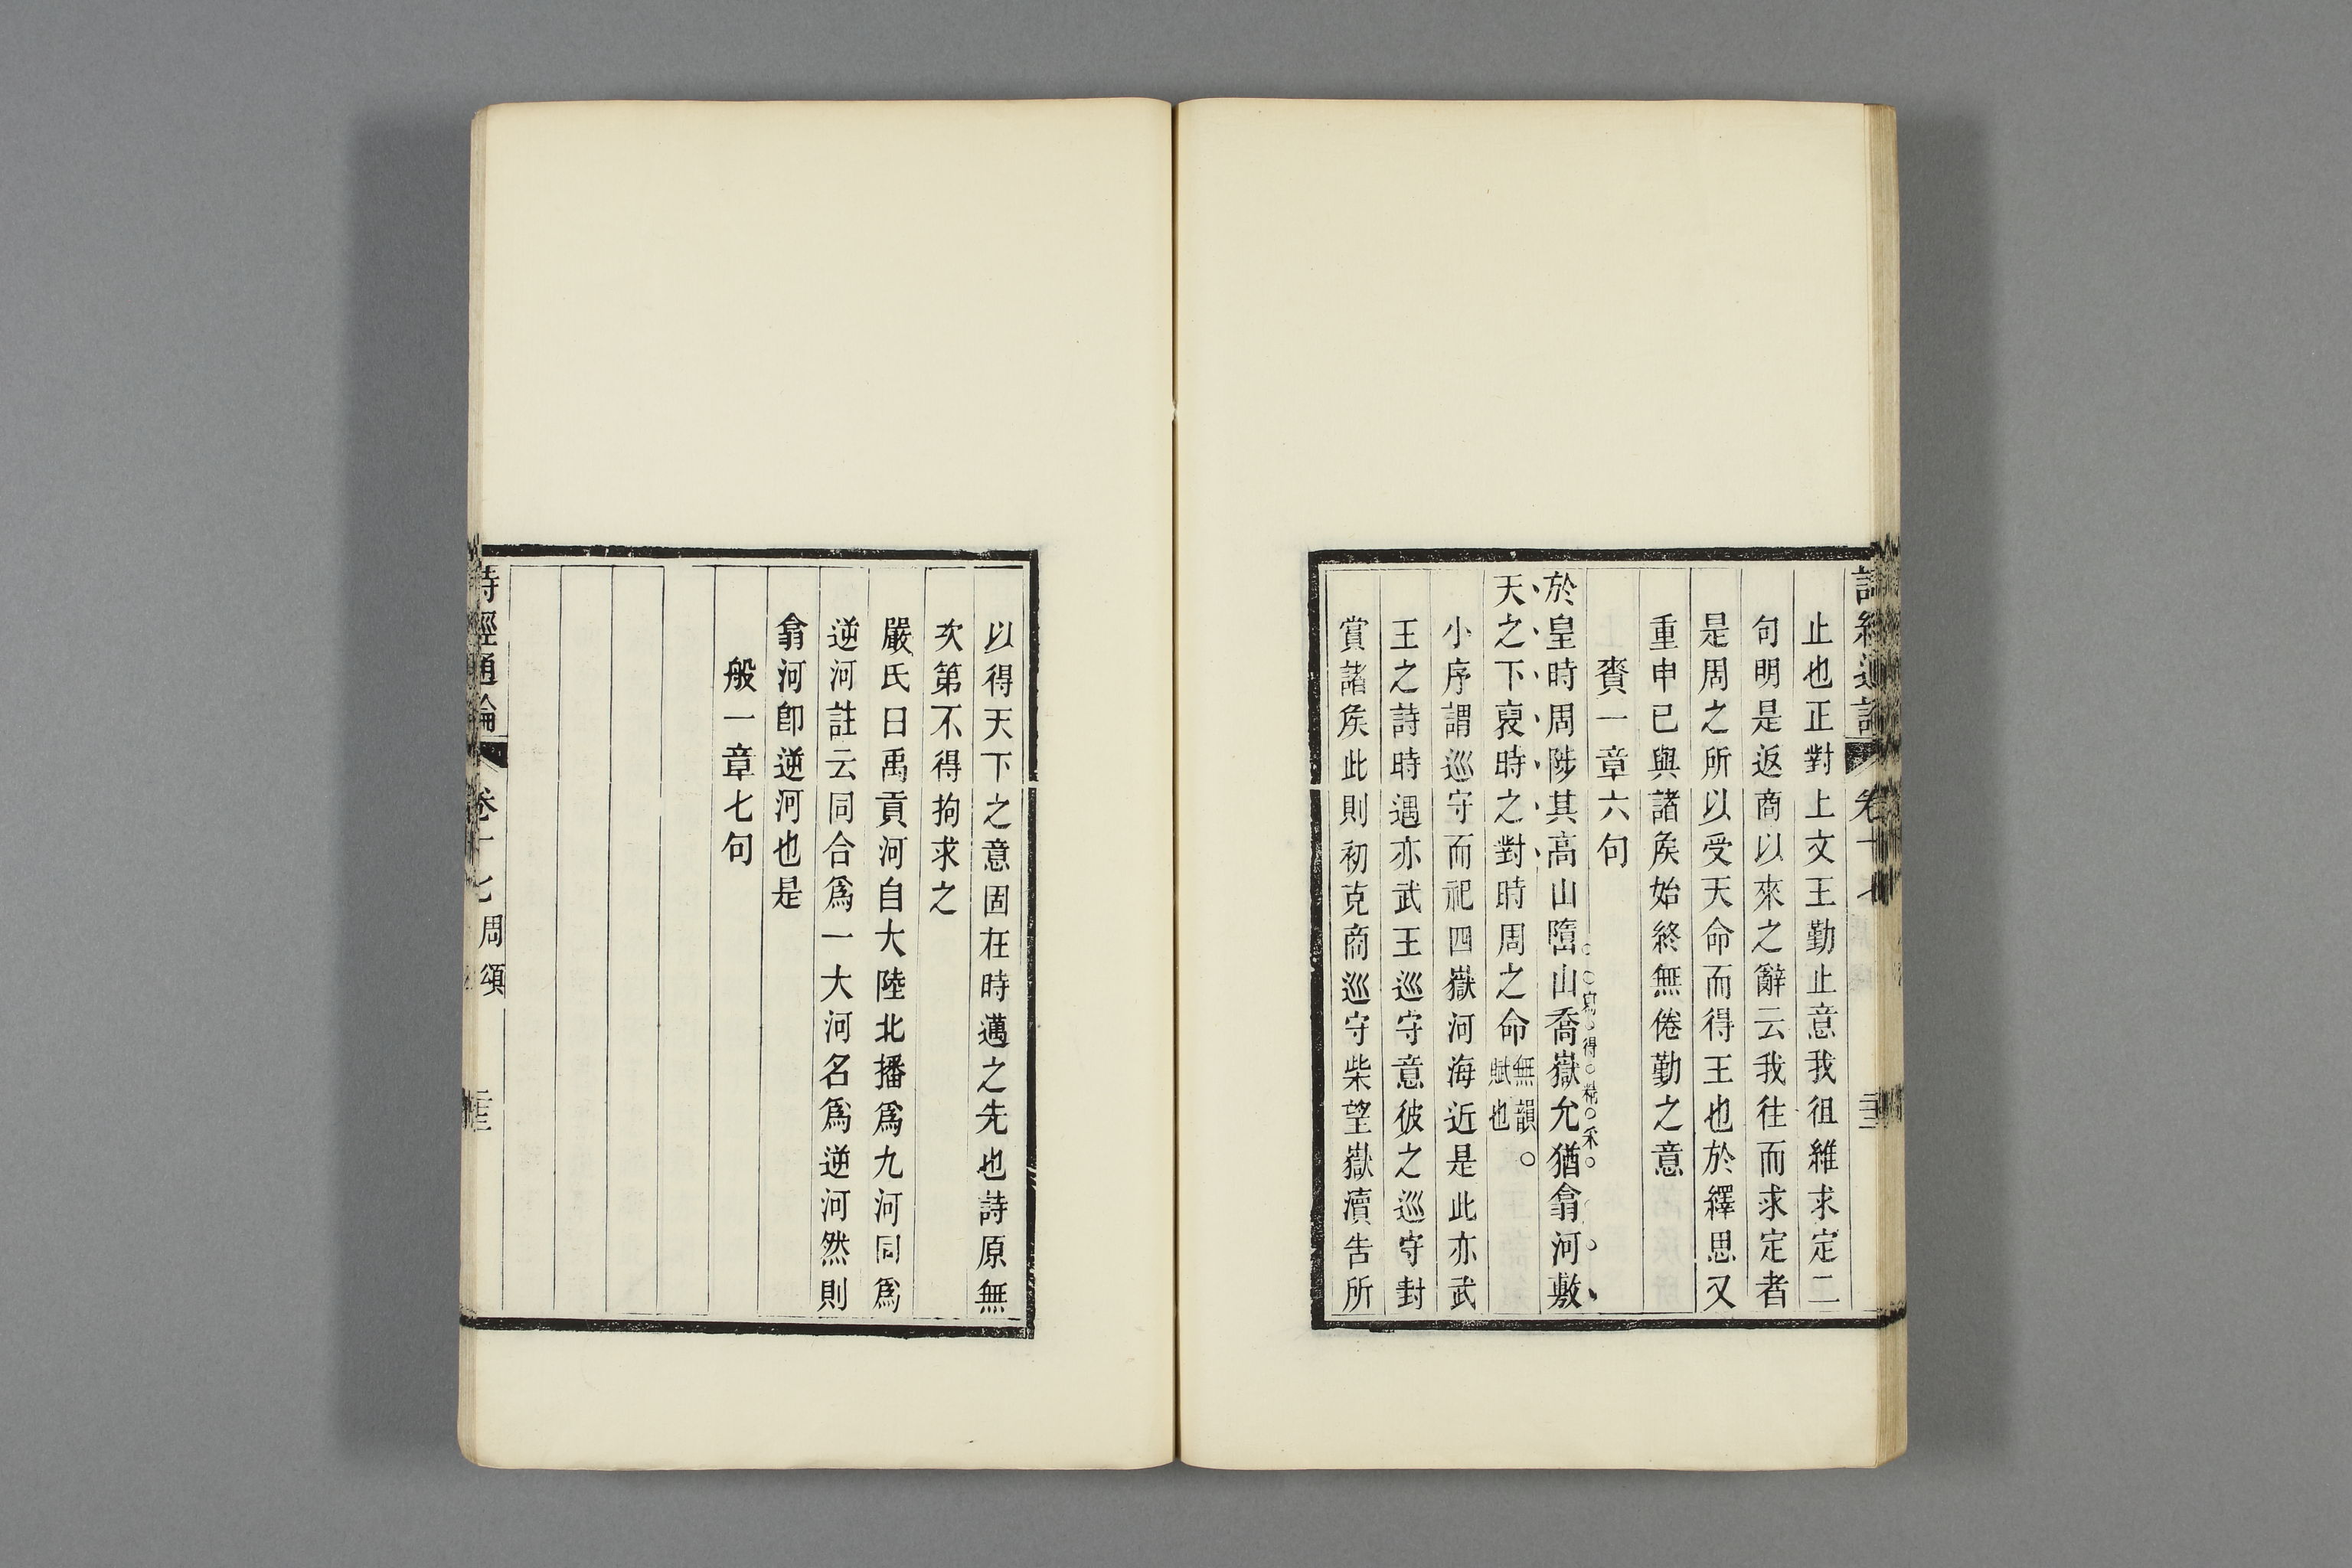 詩經通論 卷十七
止也正對上文王勤止意我徂維求定二
句明是返商以來之辭云我往而求定者
是周之所以受天命而得王也於繹思又
重申已與諸矦始終無倦勤之意
賚一章六句
於皇時周陟其高山嶞山喬嶽允猶翕河敷
寫得精采
天之下裒時之對時周之命無韻賦也
小序謂巡守而祀四嶽河海近是此亦武
王之詩時邁亦武王巡守意彼之巡守封
賞諸矦此則初克商巡守柴望嶽瀆告所
以得天下之意固在時邁之先也詩原無
次第不得拘求之
嚴氏曰禹貢河自大陸北播爲九河同爲
逆河註云同合爲一大河名爲逆河然則
翕河卽逆河也是
般一章七句
詩經通論 卷十七周頌